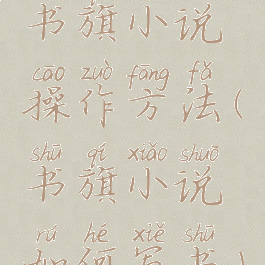 书旗小说
cāo zuò fāng fǎ
操作方法(
shū qí xiǎo shuō
书旗小说
rú hé xiě shū
如何写书)